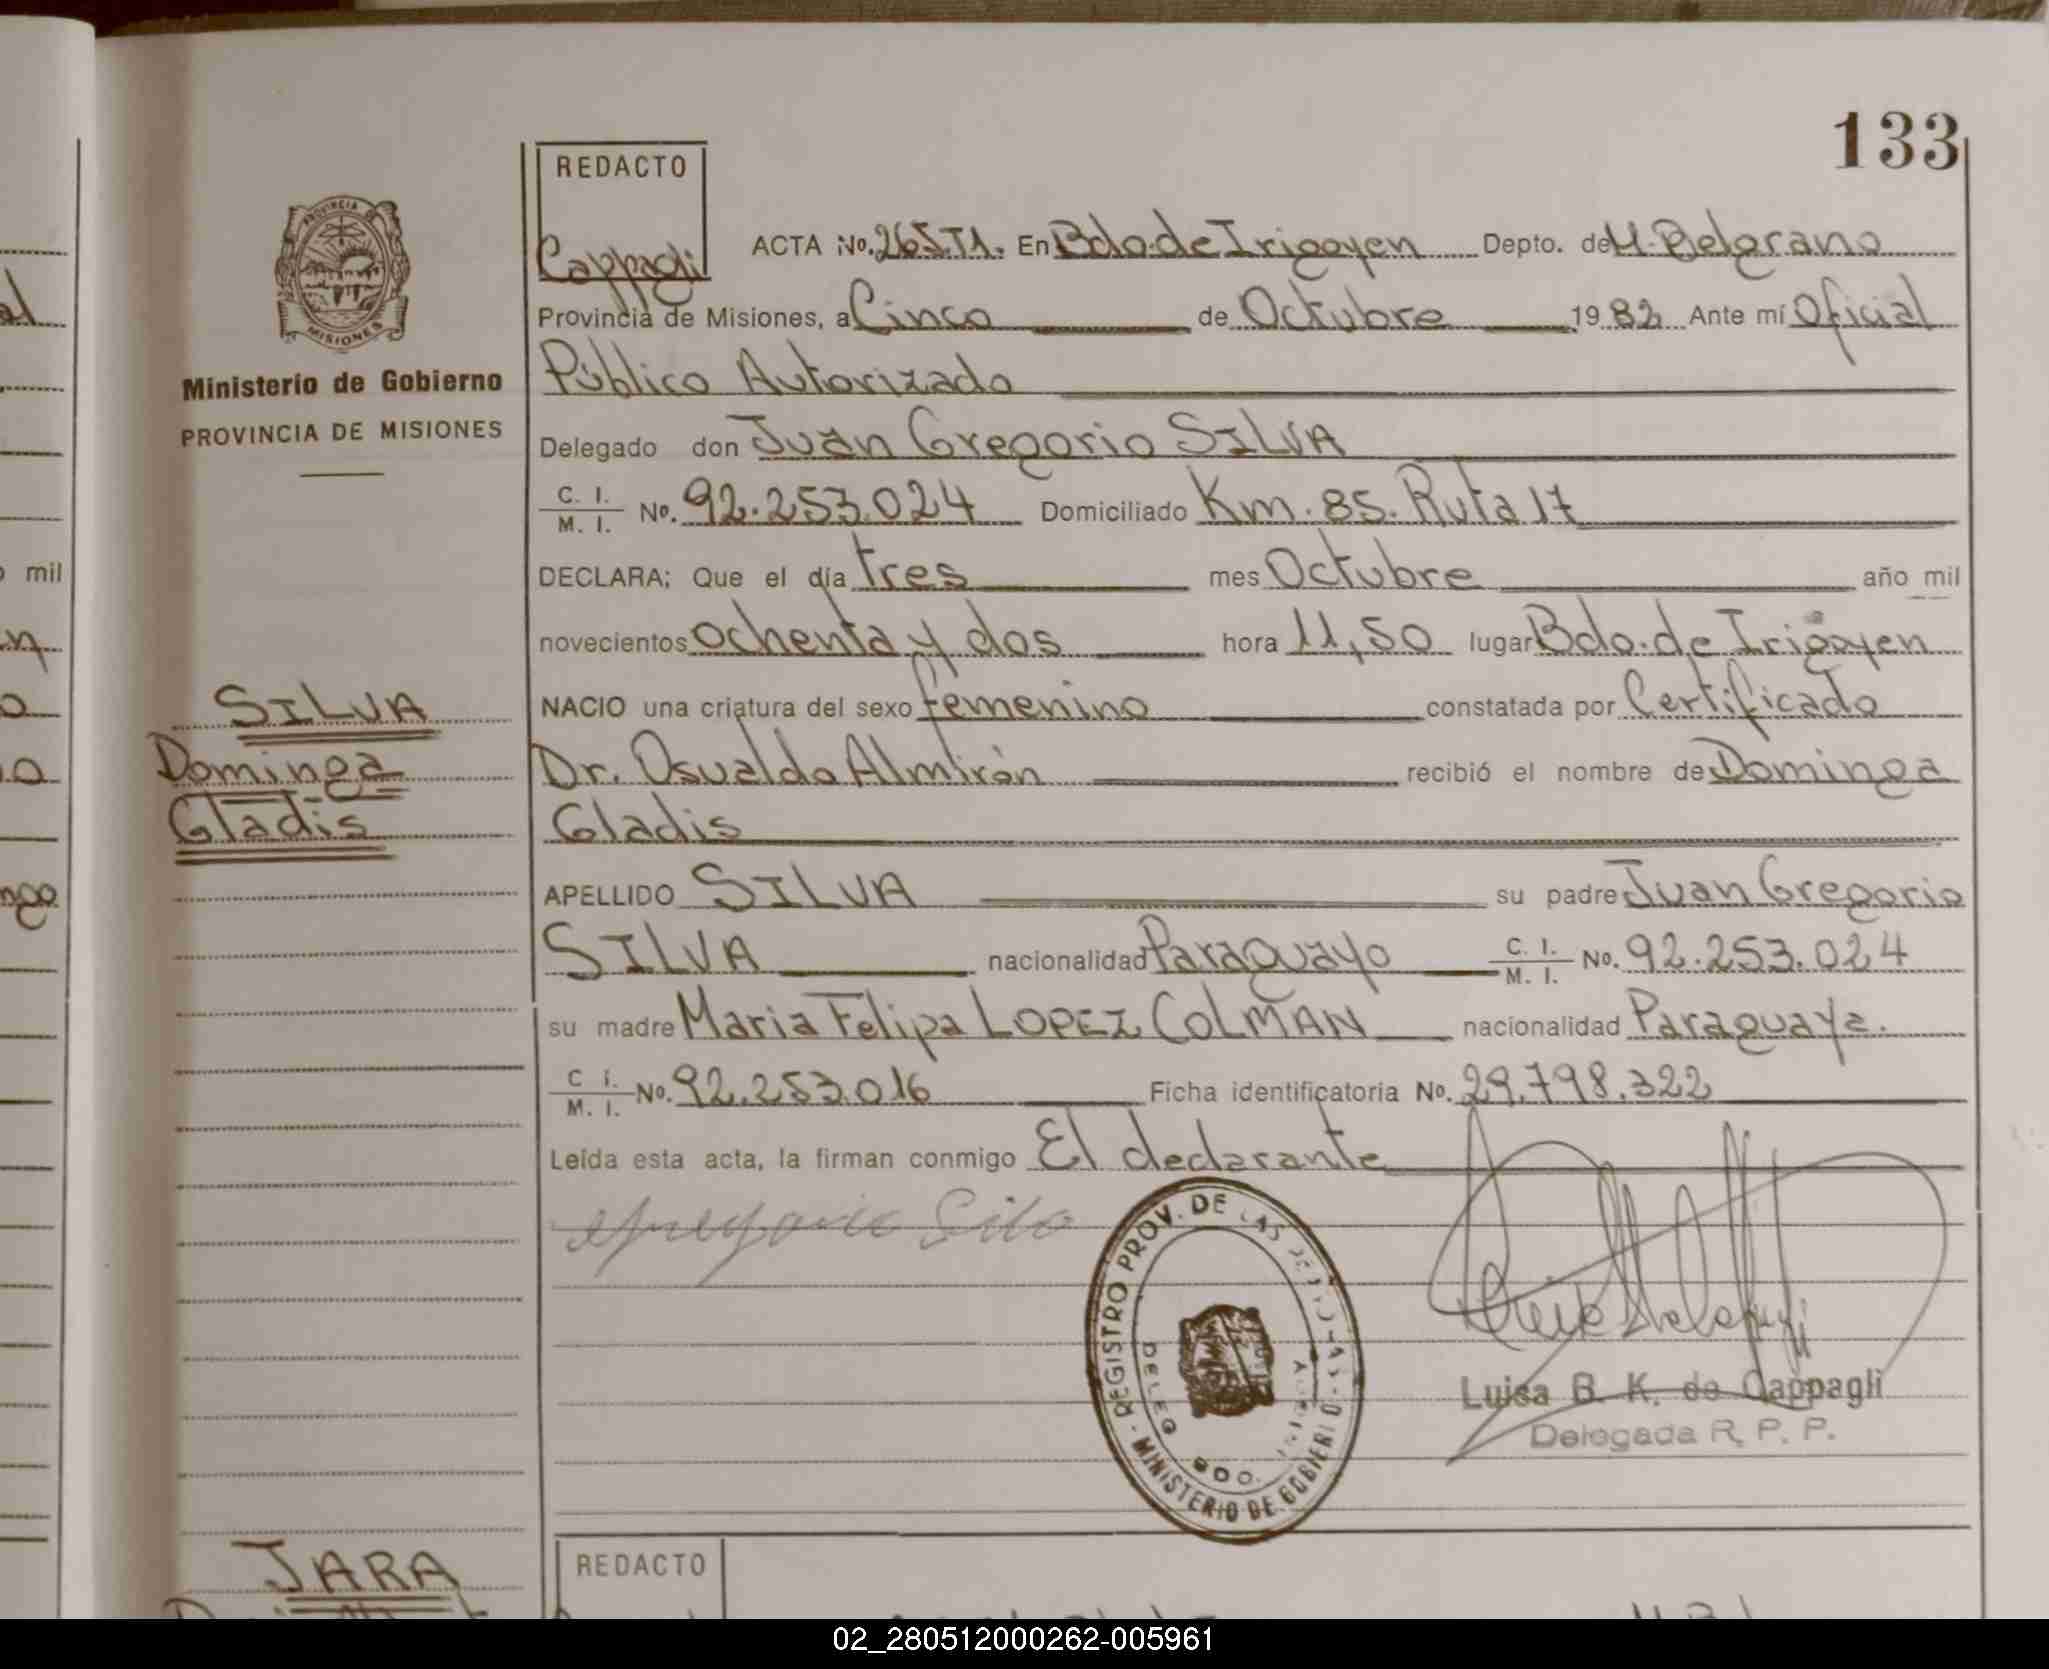 133
REDACTO
Cappagli
ACTA No. 265 T1. En Bdo. de Irigoyen Depto. de M. Belgrano
Provincia de Misiones, a Cinco de Octubre 1982 Ante mí Oficial
Público Autorizado
Delegado don Juan Gregorio SILVA
C. I. / M. I. No. 92.253.024 Domiciliado Km. 85. Ruta 17
DECLARA; Que el día tres mes Octubre año mil
novecientos ochenta y dos hora 11,50 lugar Bdo. de Irigoyen
NACIO una criatura del sexo femenino constatada por Certificado
Dr. Osvaldo Almirón recibió el nombre de Dominga
Gladis
APELLIDO SILVA su padre Juan Gregorio
SILVA nacionalidad Paraguayo C. I. / M. I. No. 92.253.024
su madre Maria Felipa LOPEZ COLMAN nacionalidad Paraguaya.
C. I. / M. I. No. 92.253.016 Ficha identificatoria No. 29.798.322
Leída esta acta, la firman conmigo El declarante
Luisa B. K. de Cappagli
Delegada R. P. P.
REGISTRO PROV. DE LAS PERSONAS - MINISTERIO DE GOBIERNO
PROVINCIA DE
MISIONES
Ministerio de Gobierno
PROVINCIA DE MISIONES
SILVA
Dominga
Gladis
JARA
REDACTO
mil
02_280512000262-005961